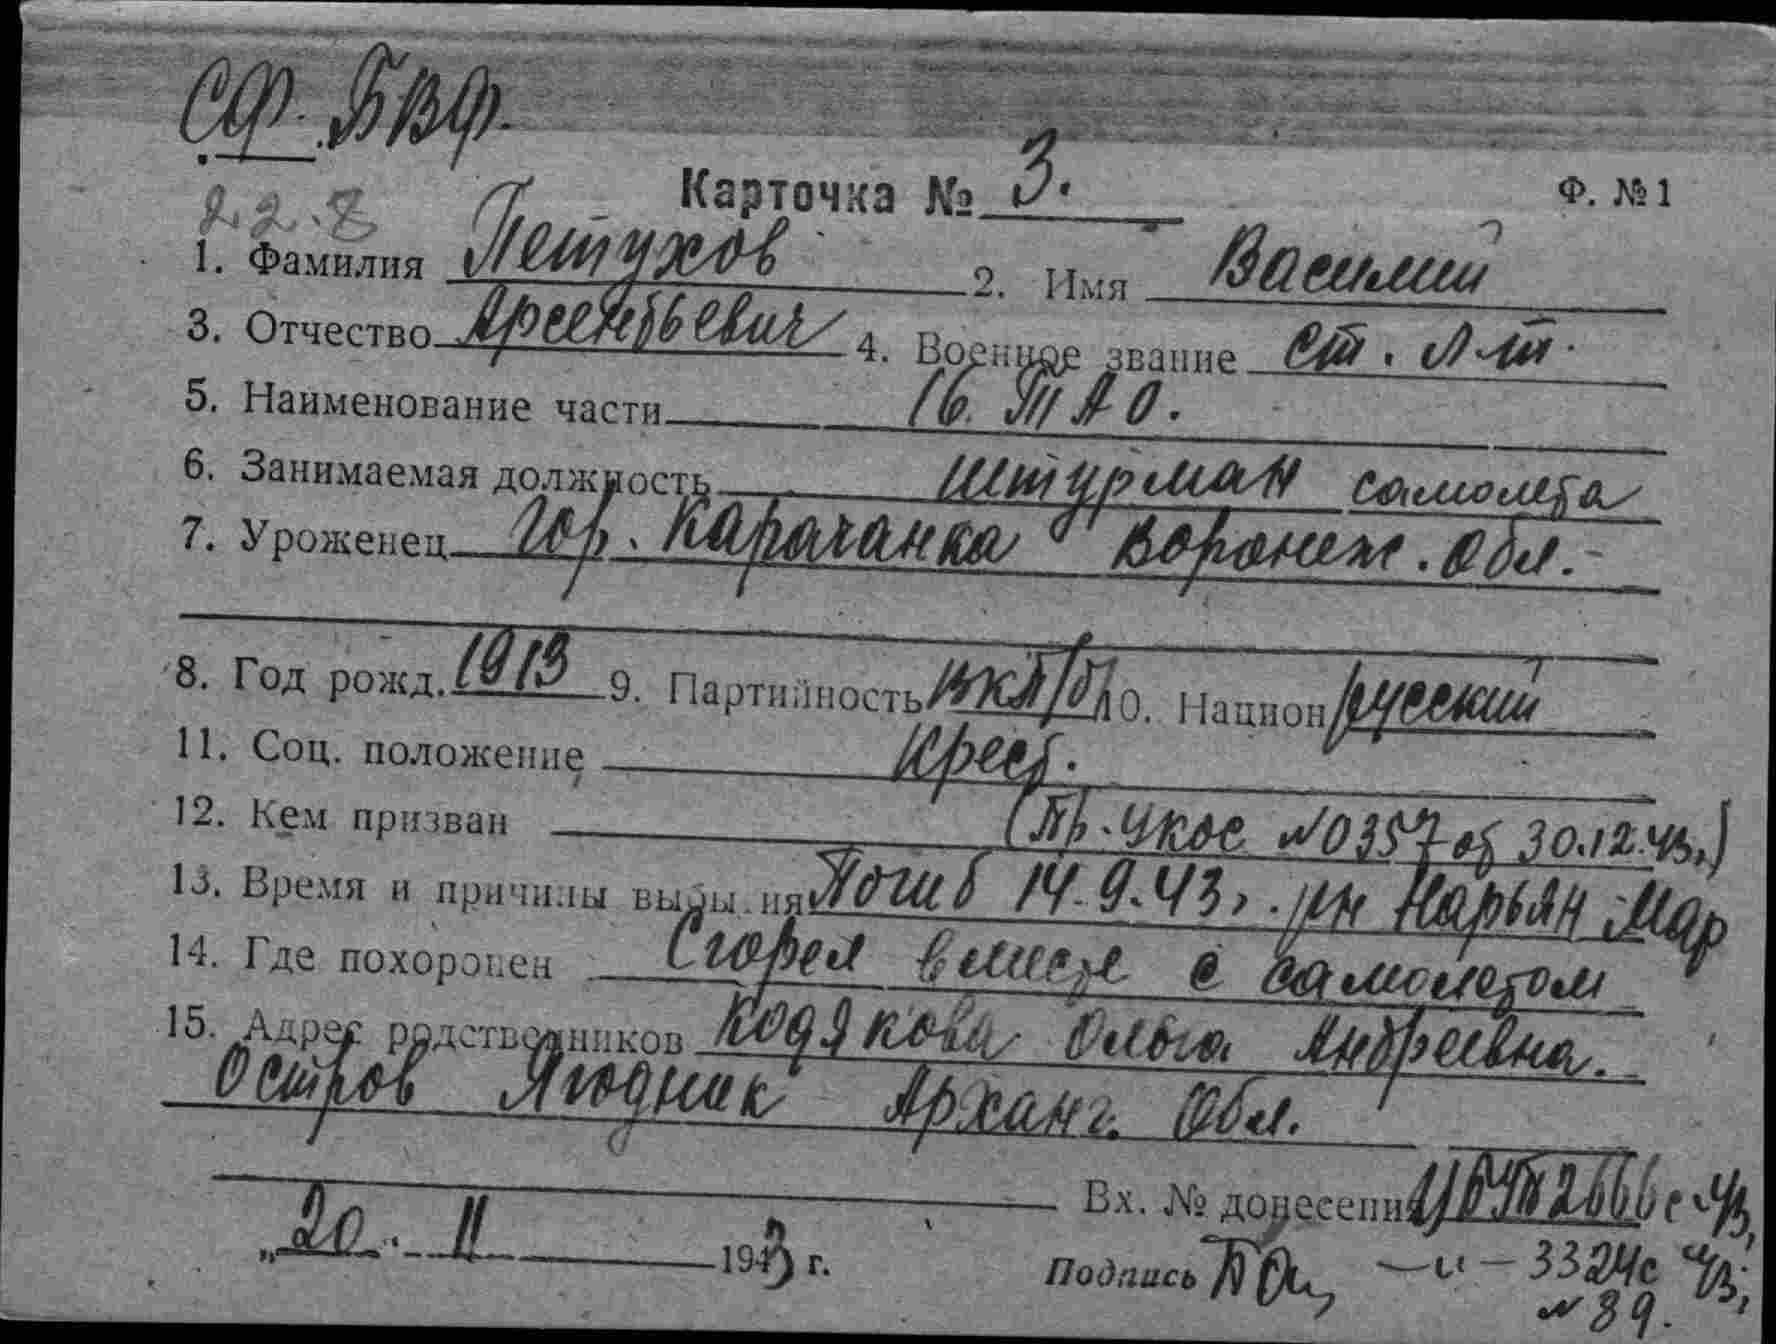 СФ. БВФ.
Карточка № 3. Ф. № 1
2.2.8
1. Фамилия Петухов 2. Имя Василий
3. Отчество Арсентьевич 4. Военное звание ст. л-т.
5. Наименование части 16. ТАО.
6. Занимаемая должность штурман самолета
7. Уроженец гор. Карачанка Воронеж. Обл.
8. Год рожд. 1913 9. Партийность ВКП/б/ 10. Национ русский
11. Соц. положение Крест.
12. Кем призван (Пр. УКОС № 0357 от 30.12.43.)
13. Время и причины выбытия Погиб 14.9.43, рн Нарьян Мар
14. Где похоронен Сгорел вместе с самолетом
15. Адрес родственников Кодякова Ольга Андреевна.
Остров Ягодник Арханг. Обл.
Вх. № донесения 2666с 43,
„20. 11 1943 г.
Подпись —и— 3324с 43,
№ 89.